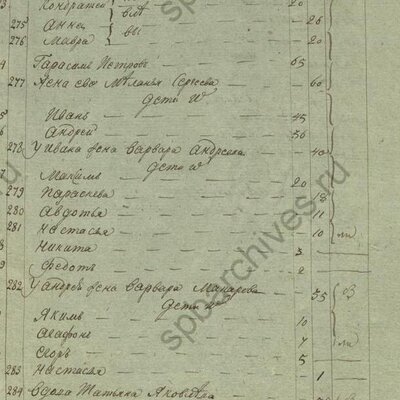 3 Кондратей 20
275 Анна 26
276 Мавра вы 20
Гарасимъ Петровъ 65
277 Жена ево Меланья Сергеева 60
дети
Иванъ 45
Андрей 36
278 У Ивана жена Варвара Андреева 40
дети
Максимъ 20
279 Параскева 18
280 Авдотья 11
281 Настасья 10
Никита 3
Федотъ 2
282 У Андрея жена Варвара Макарова 35
дети
Якимъ 10
Агафонъ 7
Егоръ 5
283 Настасья 1
284 Вдова Татьяна Яковлева
spbarchives.ru